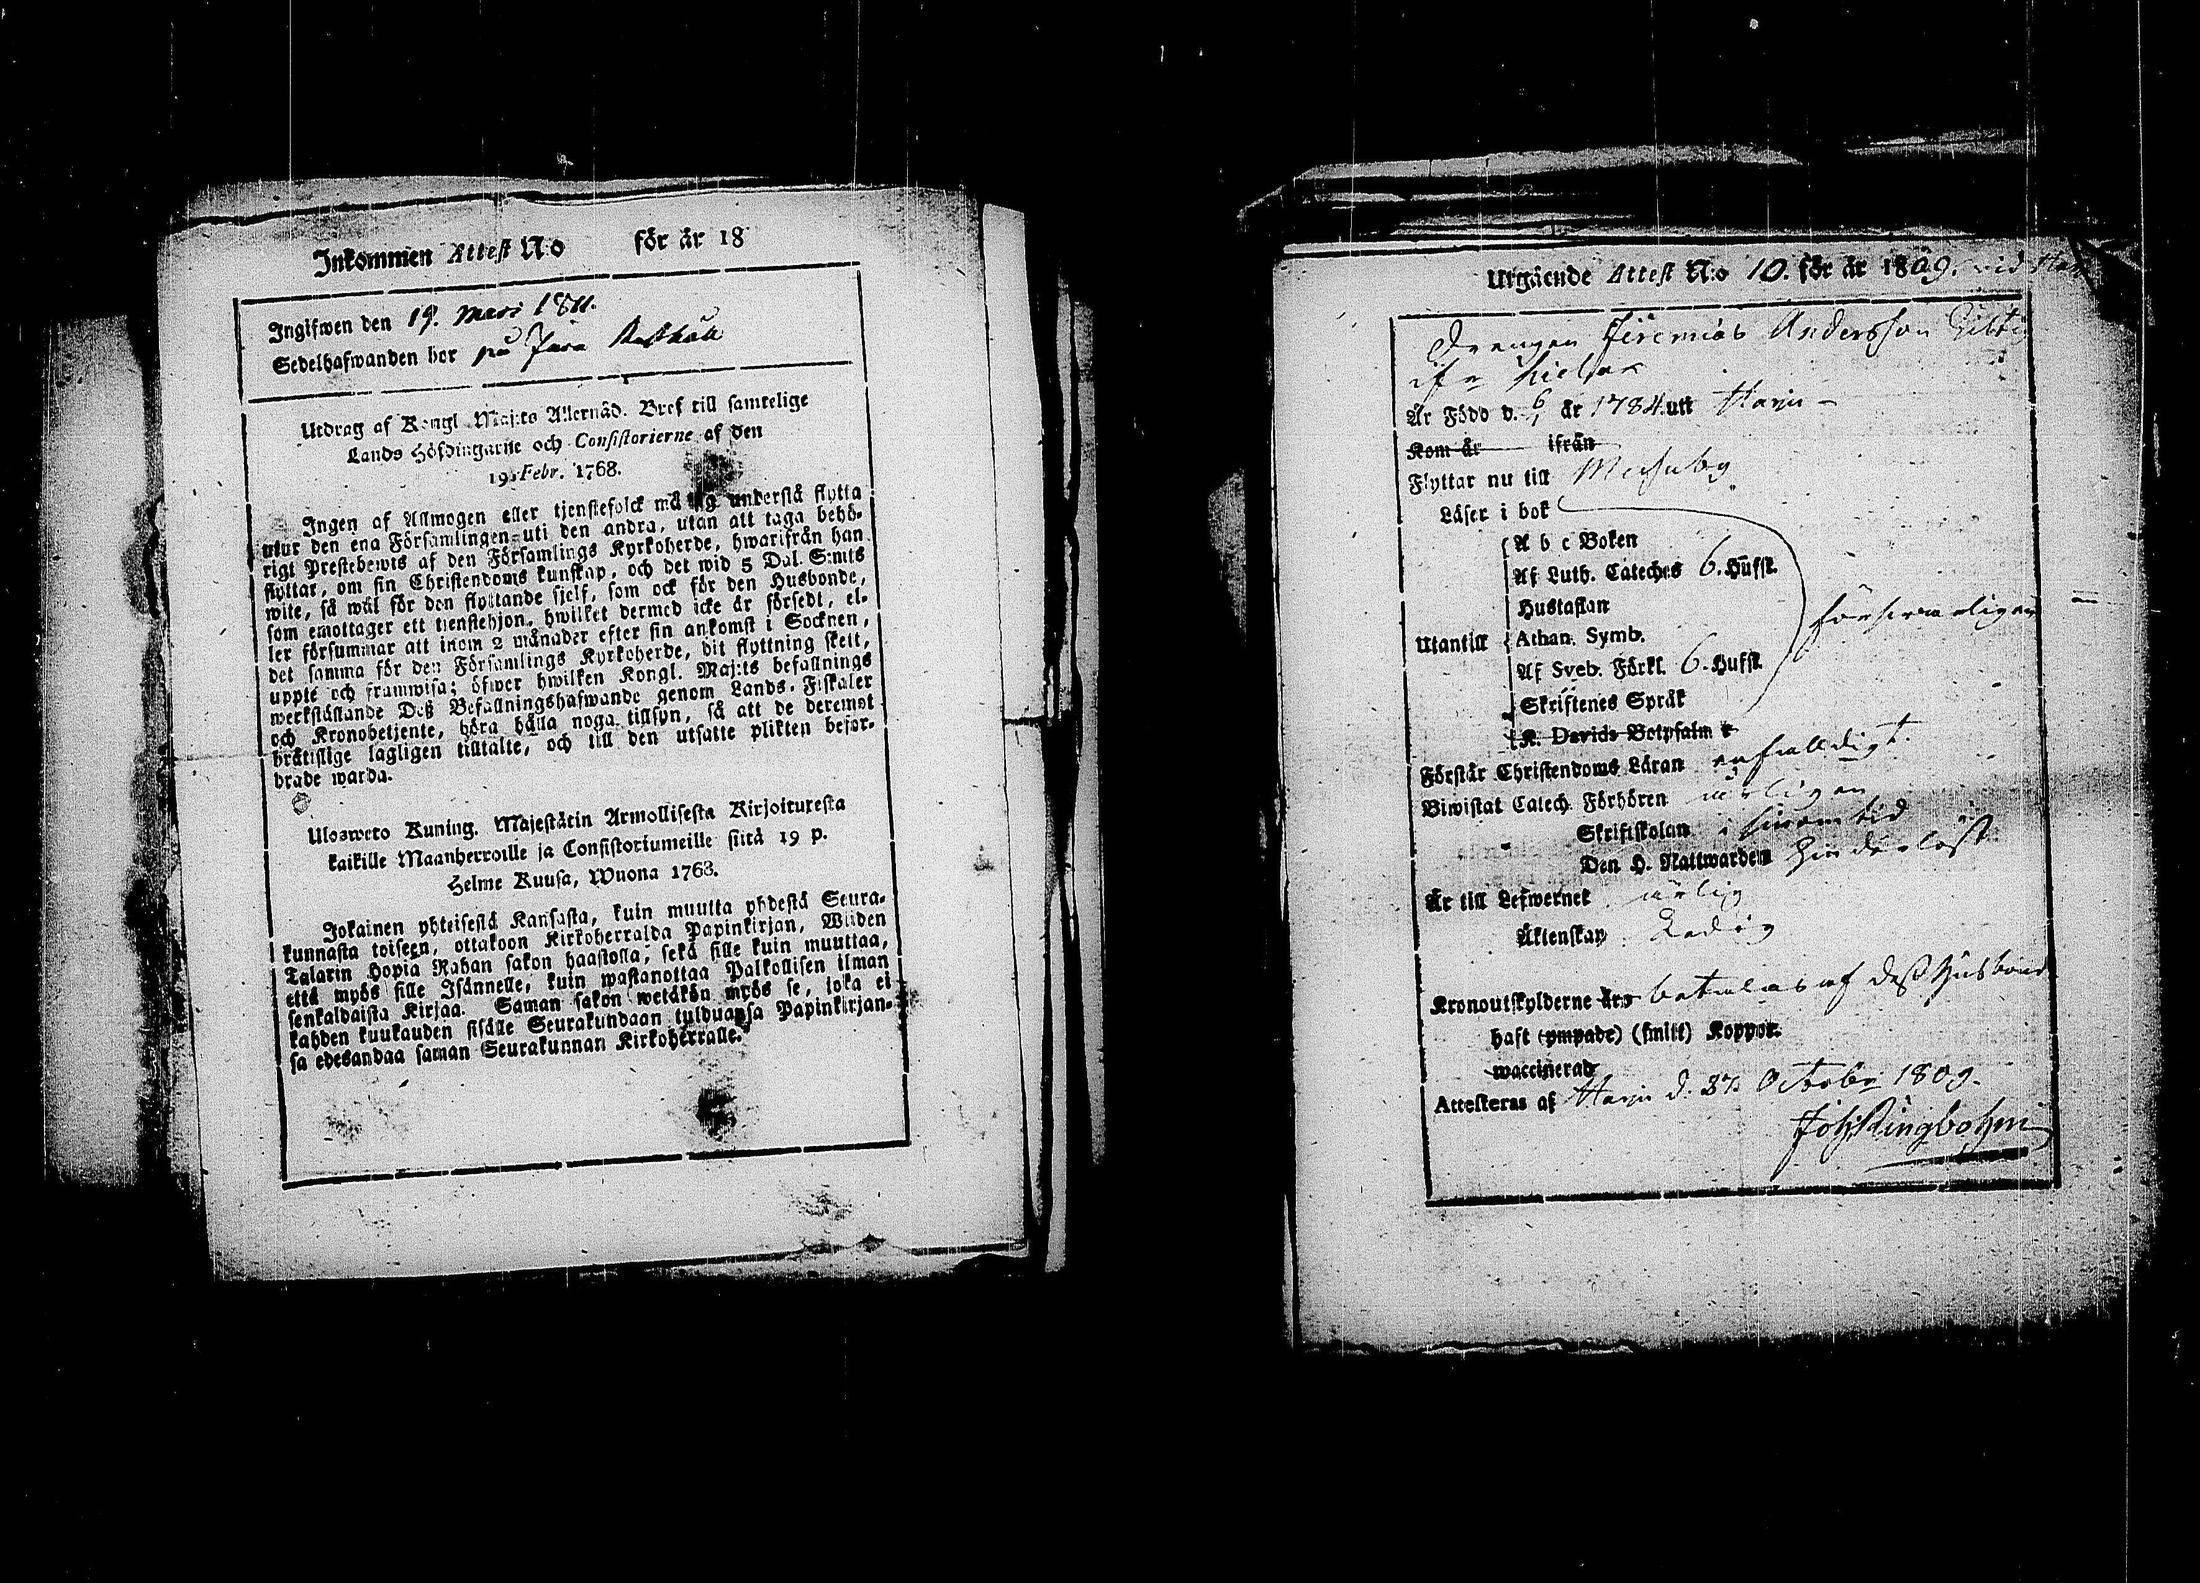 Inkommen Attest No för år 18
Ingifwen den 19. Mars 1811.
Sedelhafwanden bor på Jura Rusthåll
Utdrag af Kongl. Maj:ts Allernåd. Bref till samtelige
Lands Höfdingarne och Consistorierne af den
19 Febr. 1768.
Ingen af Allmogen eller tjenstefolck må sig understå flytta
utur den ena Församlingen uti den andra, utan att taga behö-
rigt Prestebewis af den Församlings Kyrkoherde, hwarifrån han
flyttar, om sin Christendoms kunskap, och det wid 5 Dal. S:mts
wite, så wäl för den flyttande sjelf, som ock för den Husbonde,
som emottager ett tienstehjon, hwilket dermed icke är försedt, el-
ler försummar att inom 2 månader efter sin ankomst i Socknen,
det samma för den Församlings Kyrkoherde, dit flyttning skett,
uppte och framwisa; öfwer hwilken Kongl. Maj:ts befallnings
werkställande Deß Befallningshafwande genom Lands-Fiskaler
och Kronobetjente, böra hålla noga tillsyn, så att de deremot
bråttslige lagligen tilltalte, och till den utsatte plikten befor-
drade warda.
Ulosweto Kuning. Majestätin Armollisesta Kirjoituxesta
kaikille Maanherroille ja Consistoriumeille siitä 19 p.
Helme Kuusa, Wuona 1768.
Jokainen yhteisestä Kansasta, kuin muutta yhdestä Seura-
kunnasta toiseen, ottakoon Kirkoherralda Papinkirjan, Wiiden
Talarin Hopia Rahan sakon haastolla, sekä sille kuin muuttaa,
että myös sille Isännelle, kuin wastanottaa Palkollisen ilman
senkaldaista Kirjaa. Saman sakon wetäkön myös se, joka ei
kahden kuukauden sisälle Seurakundaan tulduansa Papinkirjan-
sa edesandaa saman Seurakunnan Kirkoherralle.
Utgående Attest No 10. för år 1809. wid
Drengen Jeremias Andersson
Är Född d. 6 år 1784 utt Harju
Kom år ifrån
Flyttar nu till
Läser i bok
A b c Boken
Af Luth. Cateches 6. Hufst.
Hustaflan
Utantill Athan. Symb. försvarligen
Af Sveb. Förkl. 6. Hufst.
Skriftenes Språk
K. Davids Botpsalm
Förstår Christendoms Läran enfalldigt.
Biwistat Catech. Förhören årligen
Skriftskolan i sinom tid
Den H. Nattwarden hinderlöst
Är till Lefwernet ärlig
Äktenskap Ledig
Kronoutskylderne äro betalas af deß Husbond
haft (ympade) (smitt) Koppor.
waccinerad
Attesteras af Harju d. 27. Octobr 1809.
Joh. Ringbohm